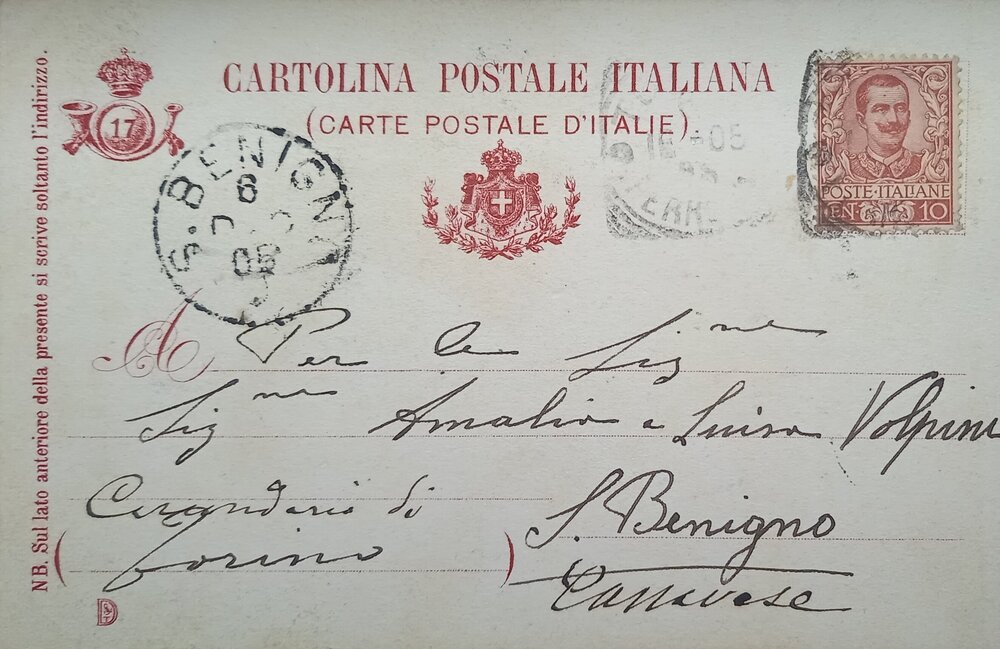 CARTOLINA POSTALE ITALIANA
(CARTE POSTALE D'ITALIE)
17
NB. Sul lato anteriore della presente si scrive soltanto l'indirizzo.
S. BENIGN
6
05
16 - 05
POSTE·ITALIANE
CEN 10
A Per le Sig.ne
Sig.ne Amalia e Luisa Volpini
Circondario di
Torino
S. Benigno
Canavese